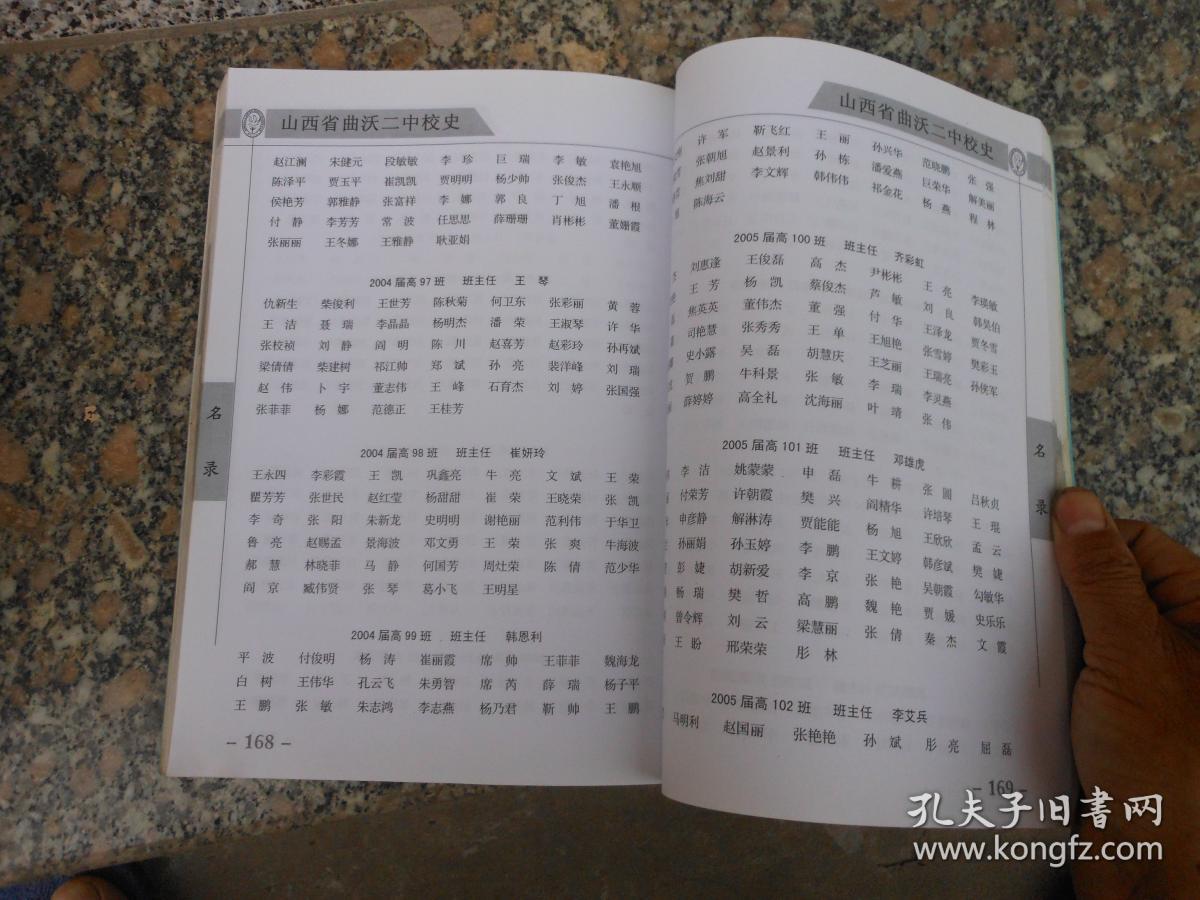 山西省曲沃二中校史
赵江澜 宋健元 段敏敏 李珍 巨瑞 李敏 袁艳旭
陈泽平 贾玉平 崔凯凯 贾明明 杨少帅 张俊杰 王永顺
侯艳芳 郭雅静 张富祥 李娜 郭良 丁旭 潘根
付静 李芳芳 常波 任思思 薛珊珊 肖彬彬 董姗霞
张丽丽 王冬娜 王雅静 耿亚娟
2004届高97班 班主任 王琴
仇新生 柴俊利 王世芳 陈秋菊 何卫东 张彩丽 黄蓉
王洁 聂瑞 李晶晶 杨明杰 潘荣 王淑琴 许华
张校祯 刘静 阎明 陈川 赵喜芳 赵彩玲 孙再斌
梁倩倩 柴建树 祁江帅 郑斌 孙亮 裴洋峰 刘瑞
赵伟 卜宇 董志伟 王峰 石育杰 刘婷 张国强
张菲菲 杨娜 范德正 王桂芳
2004届高98班 班主任 崔妍玲
王永四 李彩霞 王凯 巩鑫亮 牛亮 文斌 王荣
瞿芳芳 张世民 赵红莹 杨甜甜 崔荣 王晓荣 张凯
李奇 张阳 朱新龙 史明明 谢艳丽 范利伟 于华卫
鲁亮 赵赐孟 景海波 邓文勇 王荣 张爽 牛海波
郝慧 林晓菲 马静 何国芳 周灶荣 陈倩 范少华
阎京 臧伟贤 张琴 葛小飞 王明星
2004届高99班 班主任 韩恩利
平波 付俊明 杨涛 崔丽霞 席帅 王菲菲 魏海龙
白树 王伟华 孔云飞 朱勇智 席芮 薛瑞 杨子平
王鹏 张敏 朱志鸿 李志燕 杨乃君 靳帅 王鹏
名录
- 168 -
山西省曲沃二中校史
许军 靳飞红 王丽 孙兴华 范晓鹏 张强
张朝旭 赵景利 孙栋 潘爱燕 巨荣华 解美丽
焦刘甜 李文辉 韩伟伟 祁金花 杨燕 程林
陈海云
2005届高100班 班主任 齐彩虹
刘惠逢 王俊磊 高杰 尹彬彬 王亮 李瑛敏
王芳 杨凯 蔡俊杰 芦敏 刘良 韩昊伯
焦英英 董伟杰 董强 付华 王泽龙 贾冬雪
司艳慧 张秀秀 王单 王旭艳 张雪婷 樊彩玉
史小露 吴磊 胡慧庆 王芝丽 王瑞亮 孙侠军
贺鹏 牛科景 张敏 李瑞 李灵燕
薛婷婷 高全礼 沈海丽 叶琦 张伟
2005届高101班 班主任 邓雄虎
李洁 姚蒙蒙 申磊 牛耕 张圆 吕秋贞
付荣芳 许朝霞 樊兴 阎精华 许培琴 王琨
申彦静 解淋涛 贾能能 杨旭 王欣欣 孟云
孙丽娟 孙玉婷 李鹏 王文婷 韩彦斌 樊婕
彭婕 胡新爱 李京 张艳 吴朝霞 勾敏华
杨瑞 樊哲 高鹏 魏艳 贾媛 史乐乐
曾令辉 刘云 梁慧丽 张倩 秦杰 文霞
王盼 邢荣荣 彤林
2005届高102班 班主任 李艾兵
马明利 赵国丽 张艳艳 孙斌 彤亮 屈磊
名录
- 169 -
孔夫子旧书网
www.kongfz.com